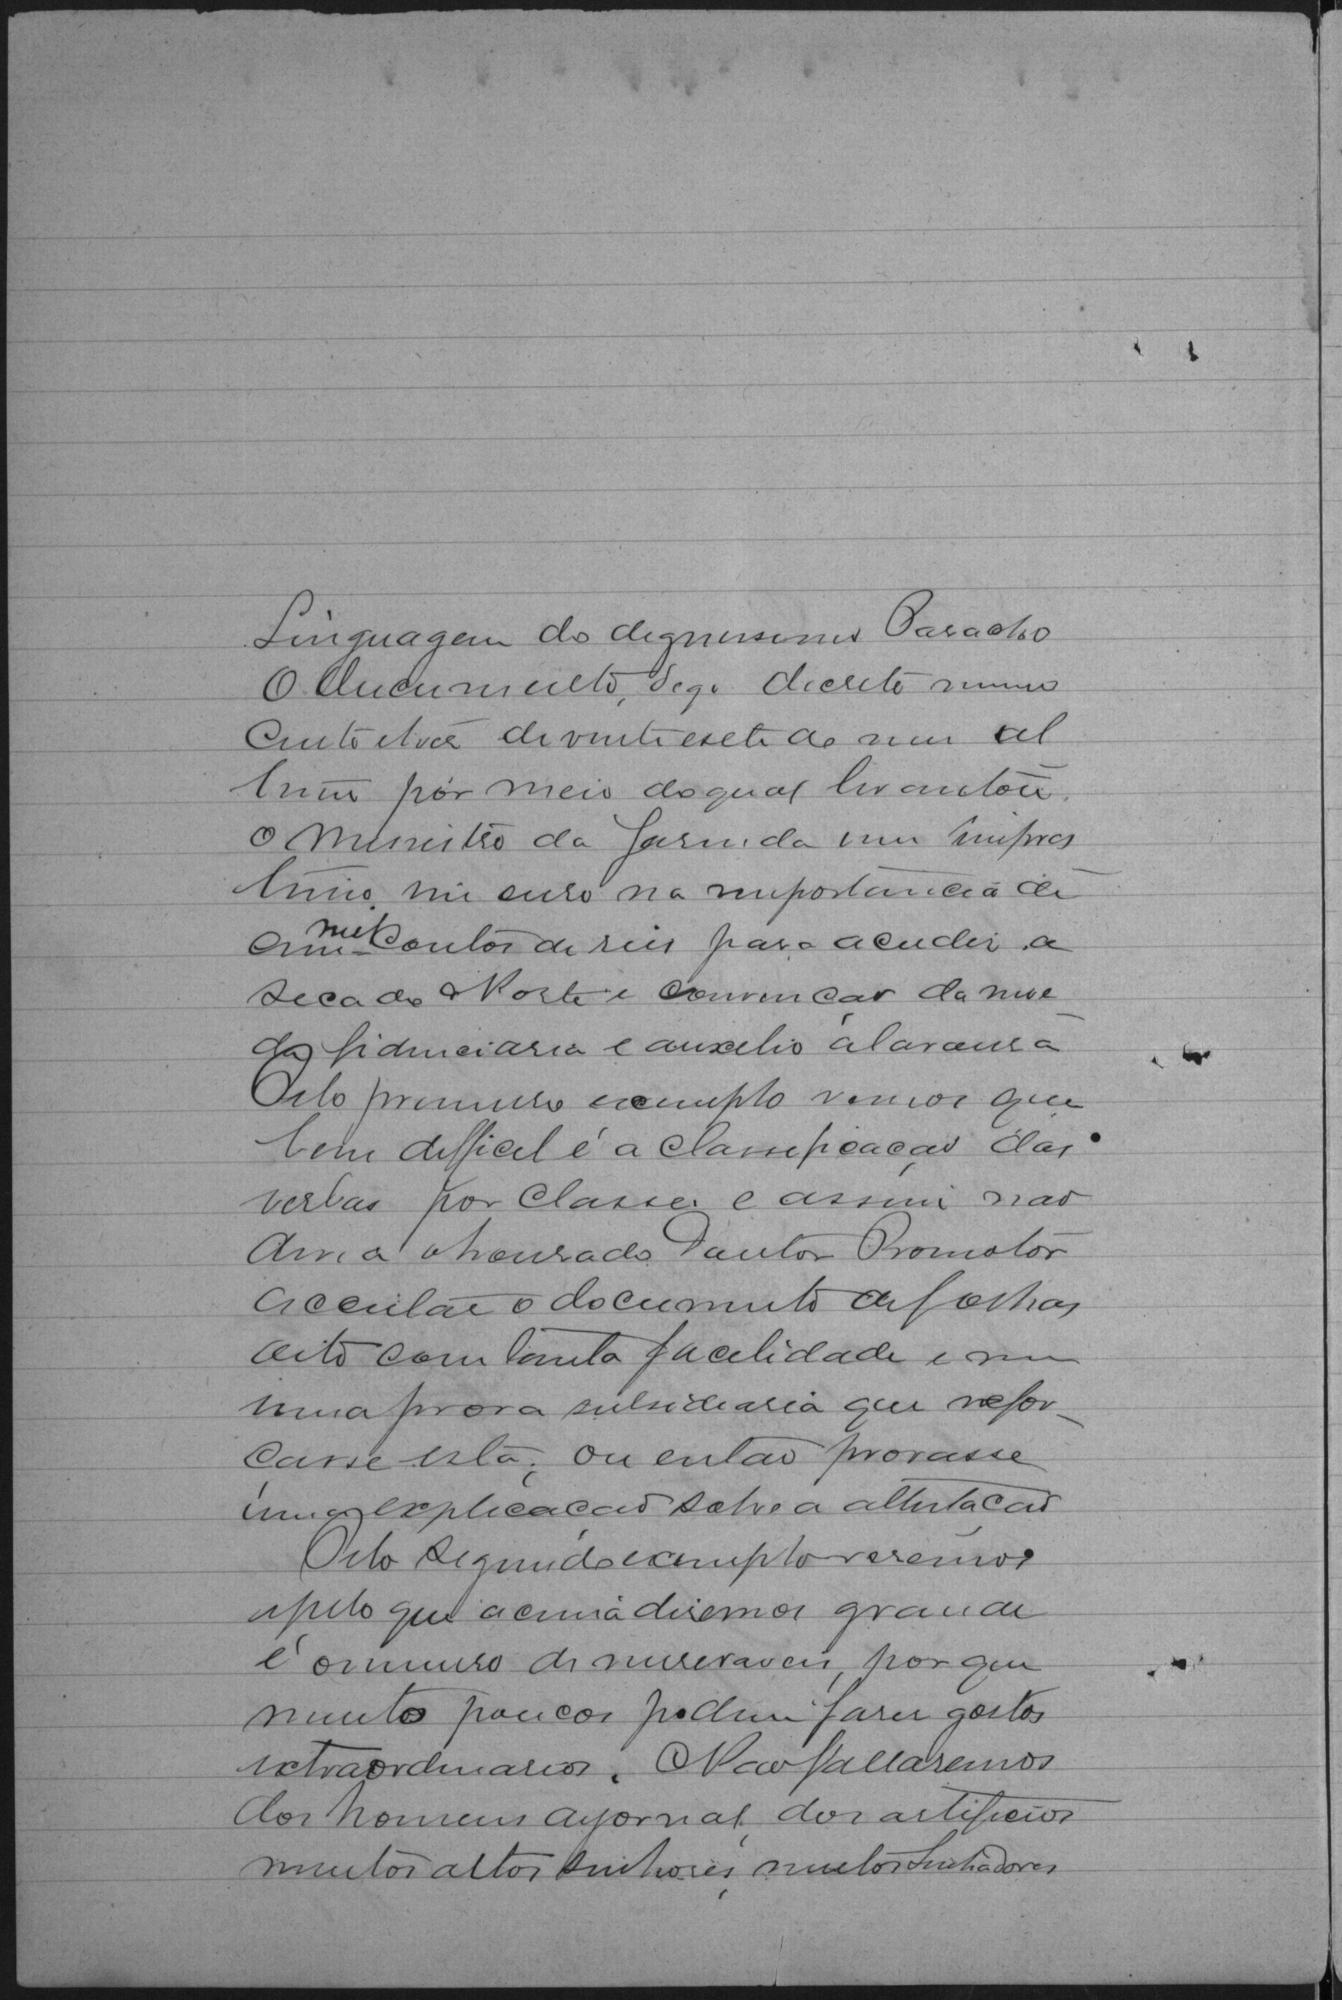 Linguagem do dignissimo Parocho
O documento, digo decreto numero
cento e tres de vinte e sete do mez ul
timo por meio do qual levantou
o Ministro da Fasenda um empres
timo na importancia de
mil contos de reis para acudir a
seca do Norte e da moe
da fiduciaria e auxilio á lavoura
Pelo primeiro exemplo vemos que
bem difficel é a classificação das
verbas por classe e assim não
devia o honrado Doutor Promotor
acceitar o documento de folhas
oito com tanta facelidade e sem
uma prova subsidiaria que refor-
casse esta, ou então provasse
uma explicação sobre a attestação
Pelo segundo exemplo veremos
e pelo que acima disemos grande
é o numero de miseraveis, por que
muito poucos podem faser gastos
extraordinarios. Não fallaremos
dos homens a jornal, dos artificios
muitos altos senhores, muitos